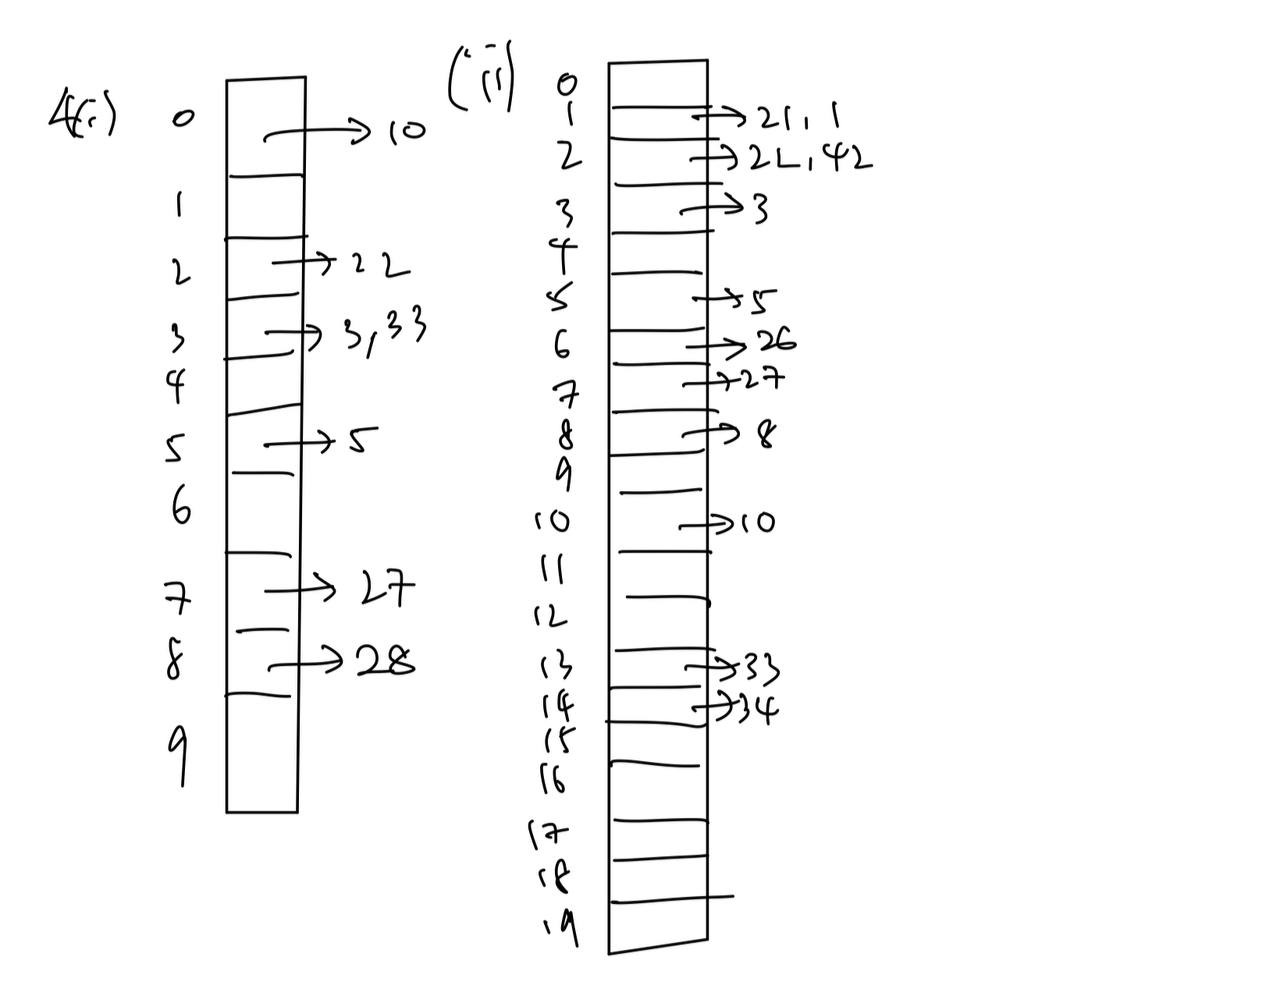 4(i)
0 → 10
1
2 → 22
3 → 3, 33
4
5 → 5
6
7 → 27
8 → 28
9
(ii)
0
1 → 21, 1
2 → 22, 42
3 → 3
4
5 → 5
6 → 26
7 → 27
8 → 8
9
10 → 10
11
12
13 → 33
14 → 34
15
16
17
18
19